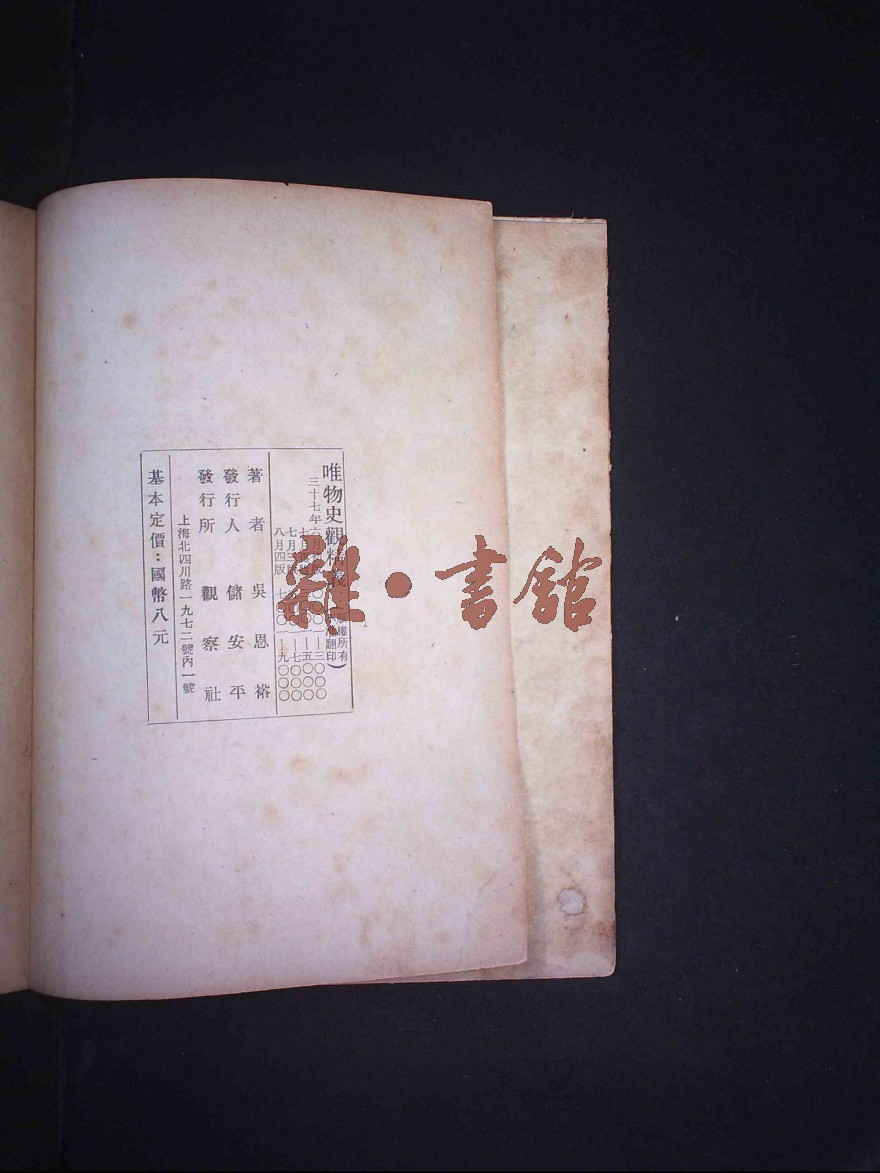 唯物史觀精義
版權所有
翻印
三十七年六月
七月
七月三版
八月四版
一三〇〇〇
一五〇〇〇
一七〇〇〇
一九〇〇〇
著者 吳恩裕
發行人 儲安平
發行所 觀察社
上海北四川路一九七二號內一號
基本定價：國幣八元
雜·書館